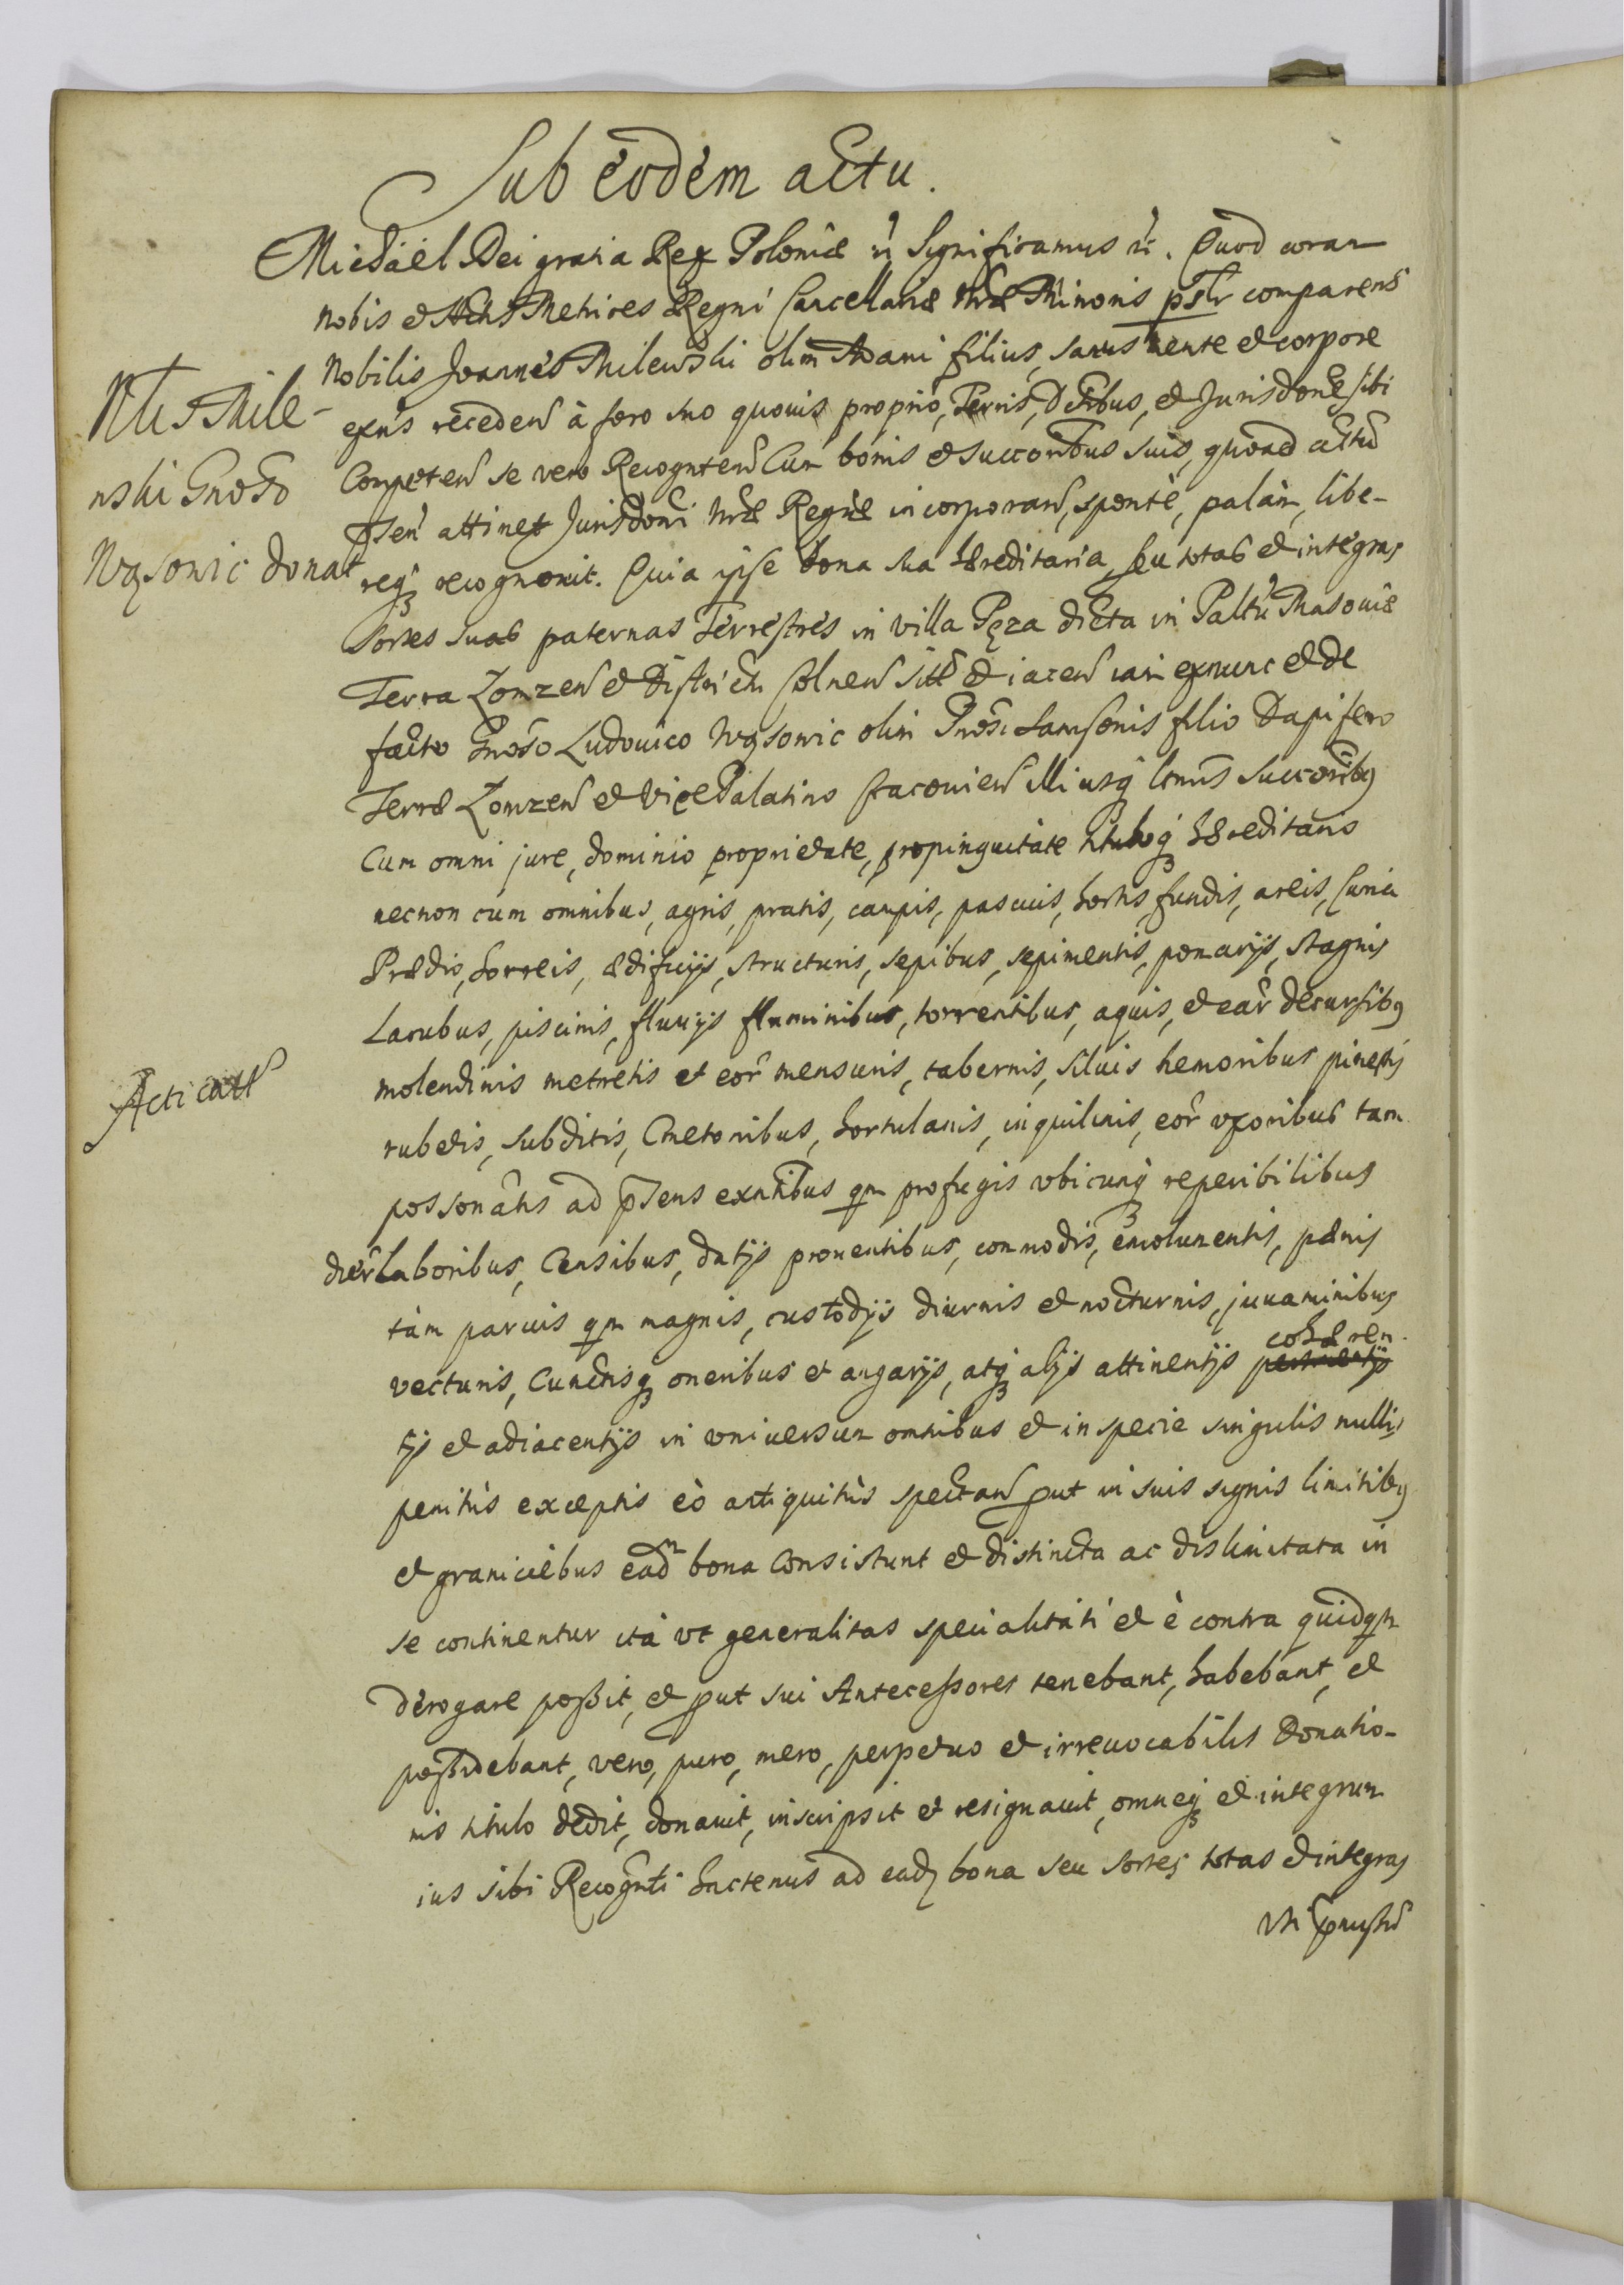 Sub eodem actu.
Michael Dei gratia Rex Poloniæ Significamus. Quod coram
nobis et Actis Metrices Regni Cancellariæ Nræ Minoris psltr comparens
Nobilis Joannes Milewski olim Adami filius, sanus mente et corpore
exns recedens à foro suo quouis proprio, Terris, Dctibus, et Jurisdone sibi
Nlis Mile-
wski Gnoso
Wąsowic donat
Competen se vero Recognten Cum bonis et succoribus suis, quoad actum
psen attinet Jurisdoni Nræ Regiæ incorporan, sponte, palàm, libe-
reqꝫ recognouit. Quia ipse bona sua hæreditaria, seu totas et integras
sortes suas paternas Terrestres in villa Pęza dicta in Paltu Masouiæ
Terra Lomzen et Districtu Colnen sitas et iacen iam exnunc et de
facto Gnoso Ludouico Wąsowic olim Gnosi Samsonis filio Dapifero
Terræ Lomzen et Vice Palatino Cracouien illiusq ltmis succoribꝫ
Cum omni jure, dominio proprietate, propinquitate tituloqꝫ hæreditario
necnon cum omnibus, agris, pratis, campis, pascuis, hortis, fundis, areis, Curia
Prædio, horreis, ædificijs, structuris, sepibus, sepimentis, pomarijs, stagnis
Lacubus, piscinis, fluuijs fluminibus, torrentibus, aquis, et ear decursibꝫ
Acticatt
molendinis metretis et eor mensuris, tabernis, siluis nemoribus pinetis
rubetis, subditis, Cmetonibus, hortulanis, inquilinis, eor vxoribus tam
possonatis ad psens exntibus qm profugis vbicunqꝫ reperibilibus
dier laboribus, Censibus, datijs prouentibus, commodis, emolumentis, pœnis
tàm paruis qm magnis, custodijs diurnis et nocturnis, juuaminibus
vecturis, Cunctisqꝫ oneribus et angarijs, atqꝫ alijs attinentijs cohæren-
tijs et adiacentijs in vniuersum omnibus et in specie singulis nullis
penitùs exceptis eò antiquitùs spectan put in suis signis limitibꝫ
et graniciebus eadm bona Consistunt et distincta ac dislimitata in
se continentur ità vt generalitas specialitati et è contra quidqm
derogare poßit, et put sui Anteceßores tenebant, habebant, et
poßidebant, vero, puro, mero, perpetuo et irreuocabilis Donatio-
nis titulo dedit, donauit, inscripsit et resignauit, omneqꝫ et integrum
ius sibi Recognti hactenus ad eadꝫ bona seu sortes totas et integras